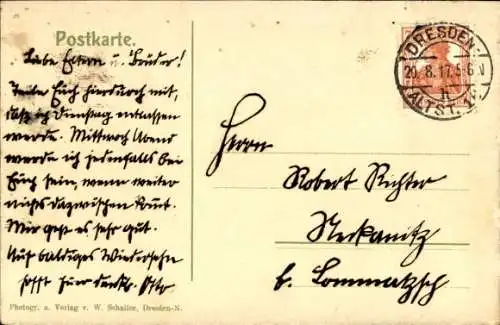 Postkarte.
Liebe Eltern u. Brüder!
Teile Euch hierdurch mit,
daß ich Dienstag entlassen
werde. Mittwoch Abend
werde ich jedenfalls bei
Euch sein, wenn weiter
nichts dazwischen
Mir geht es sehr gut.
Auf baldiges Wiedersehn
hofft Euer Otto
Photogr. u. Verlag v. W. Schaller, Dresden-N.
DRESDEN-
20.8.17.5-6N
ALTST.
Herrn
Robert Richter
Neckanitz
b. Lommatzsch